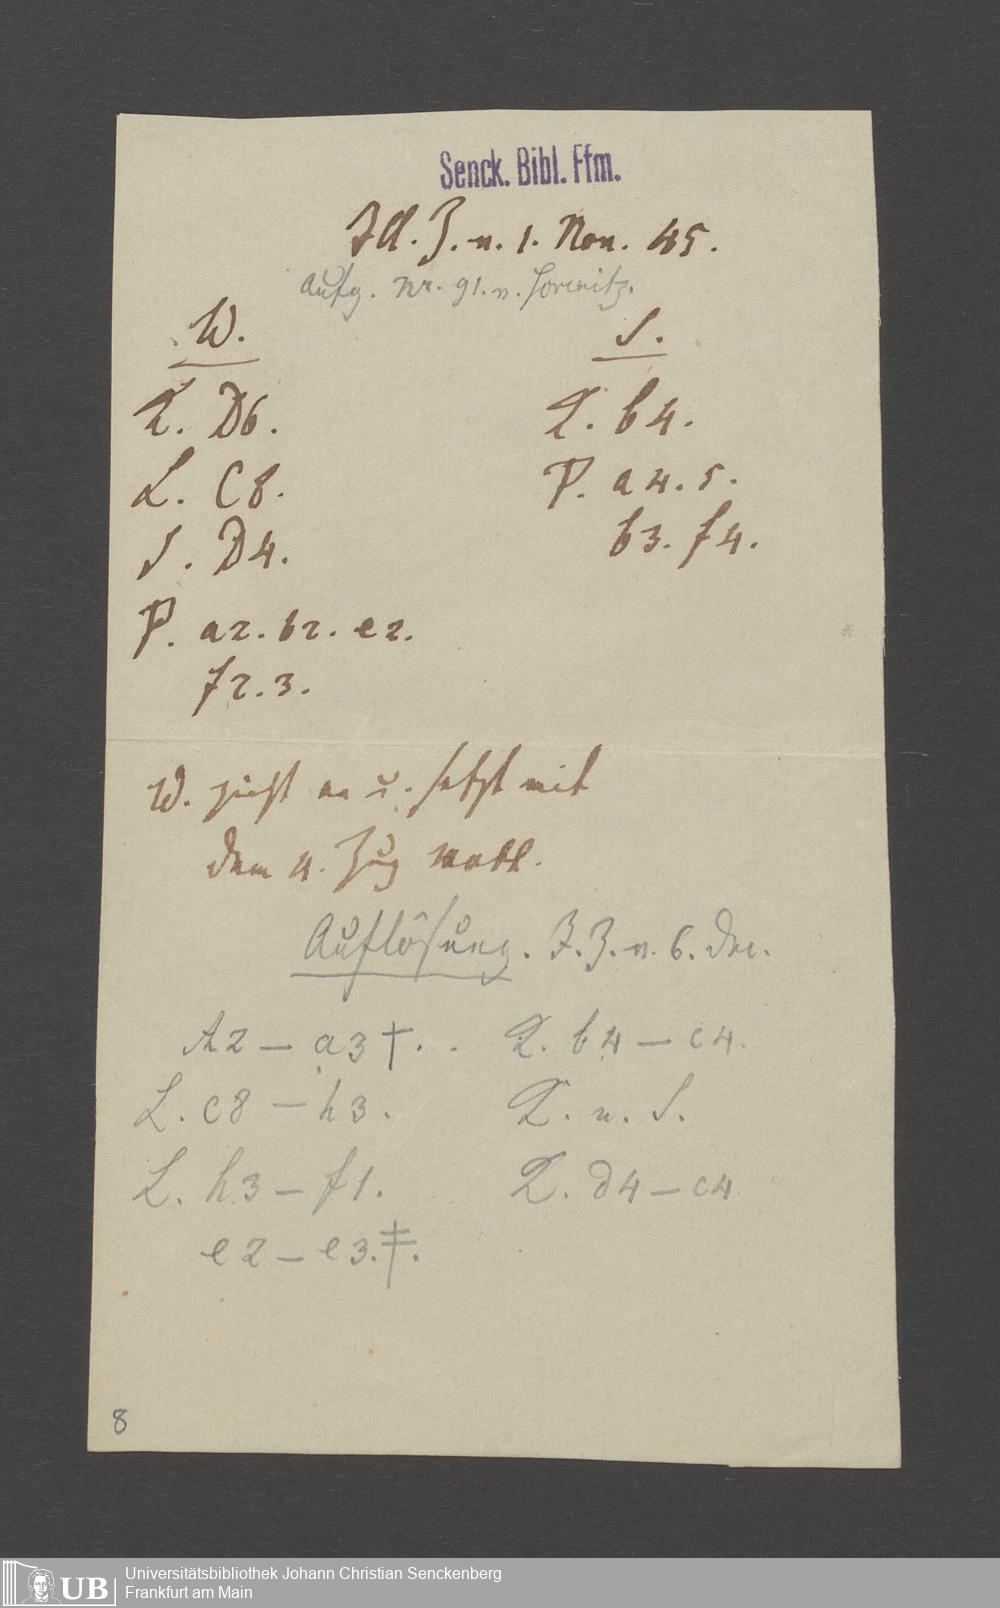 Senck. Bibl. Ffm.
Ill. Z. v. 1. Nov. 45.
Aufg. Nr. 91. v.
W.
S.
K. D6.
K. b4.
L. C8.
P. a4.5.
S. D4.
b3. f4.
P. a2. b2. e2.
f2.3.
W. zieht an u. setzt mit
dem 4. Zug matt.
Auflösung. I. Z. v. 6. Dec.
A2 — a3 †. K. b4 — c4.
L. c8 — h3. K. n. S.
L. h3 — f1. K. d4 — c4
e2 — e3. ‡.
8
UB
Universitätsbibliothek Johann Christian Senckenberg
Frankfurt am Main